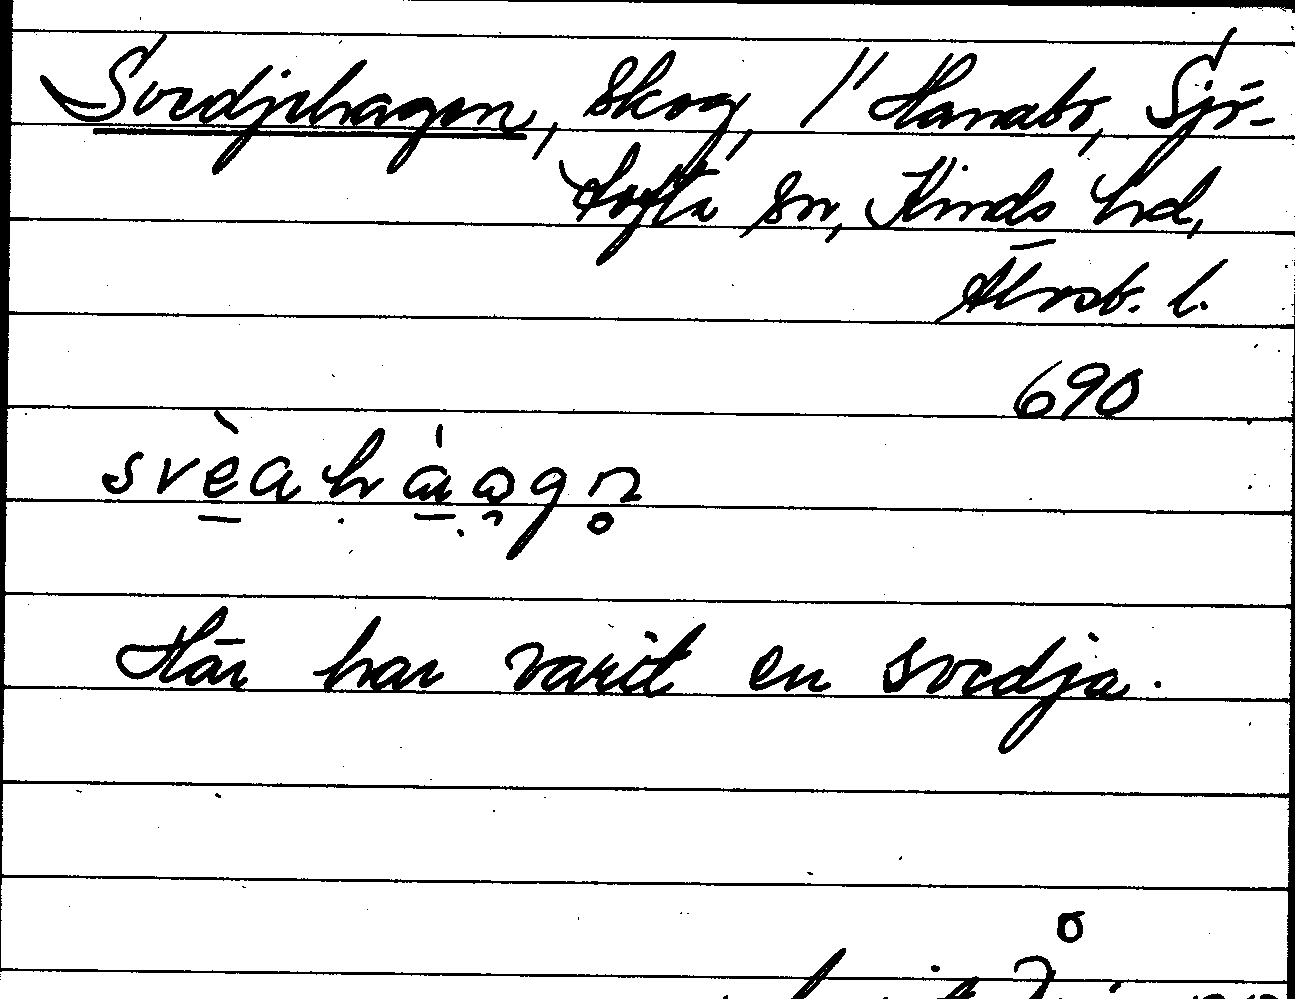 Svedjehagen, skog, 1" Hanabo, Sjö-
tofta sn, Kinds hd,
Älvsb. l.
690
svèahàagn
Här har varit en svedja.